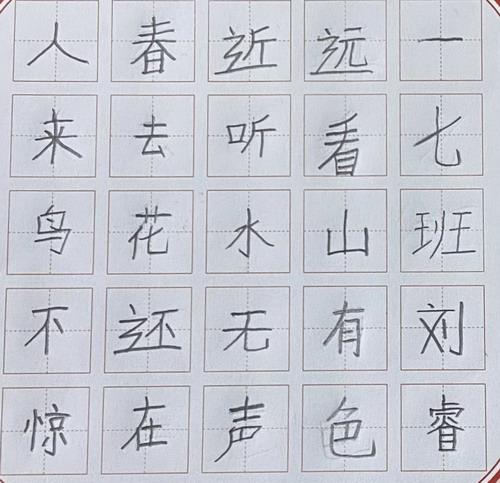 一七班刘睿
远看山有色
近听水无声
春去花还在
人来鸟不惊